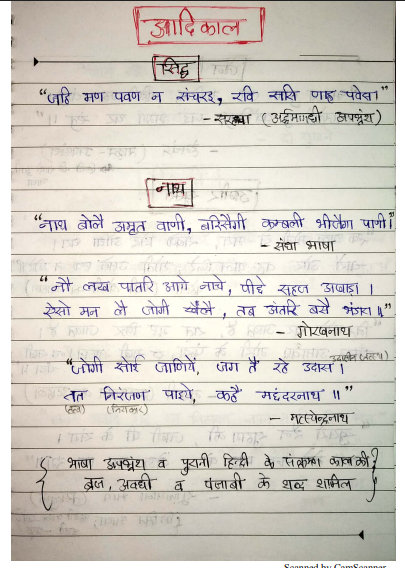 आदिकाल
सिद्ध
“जहि मण पवण न संचरइ, रवि ससि णाह पवेश”
- सरहपा (अर्द्धमागधी अपभ्रंश)
नाथ
“नाथ बोलै अमृत वाणी, बरिसैगी कम्बली भीजैगा पाणी।”
- संधा भाषा
“नौ लख पातरि आगे नाचे, पीछे सहज अखाड़ा।
ऐसो मन लै जोगी खेलै, तब अंतरि बसै भंडारा॥”
- गोरखनाथ
“जोगी सोई जाणियें, जग तैं रहे उदास।
तत निरंजण पाइये, कहै मछंदरनाथ॥”
(तत्व) (निराकार)
- मत्स्येन्द्रनाथ
{ भाषा अपभ्रंश व पुरानी हिन्दी के संक्रमण काल की }
{ ब्रज, अवधी व पंजाबी के शब्द शामिल }
Scanned by CamScanner